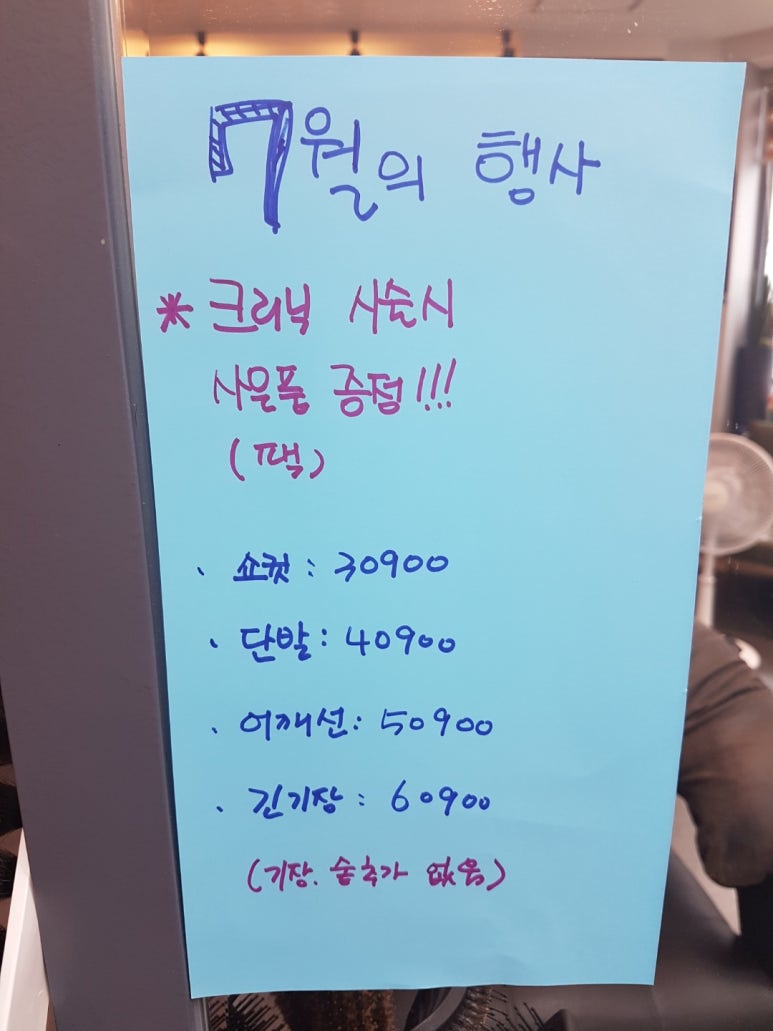 7월의 행사
* 크리닉 시술시
사은품 증정!!!
(팩)
· 쇼컷 : 30900
· 단발 : 40900
· 어깨선 : 50900
· 긴기장 : 60900
(기장. 숱추가 없음)